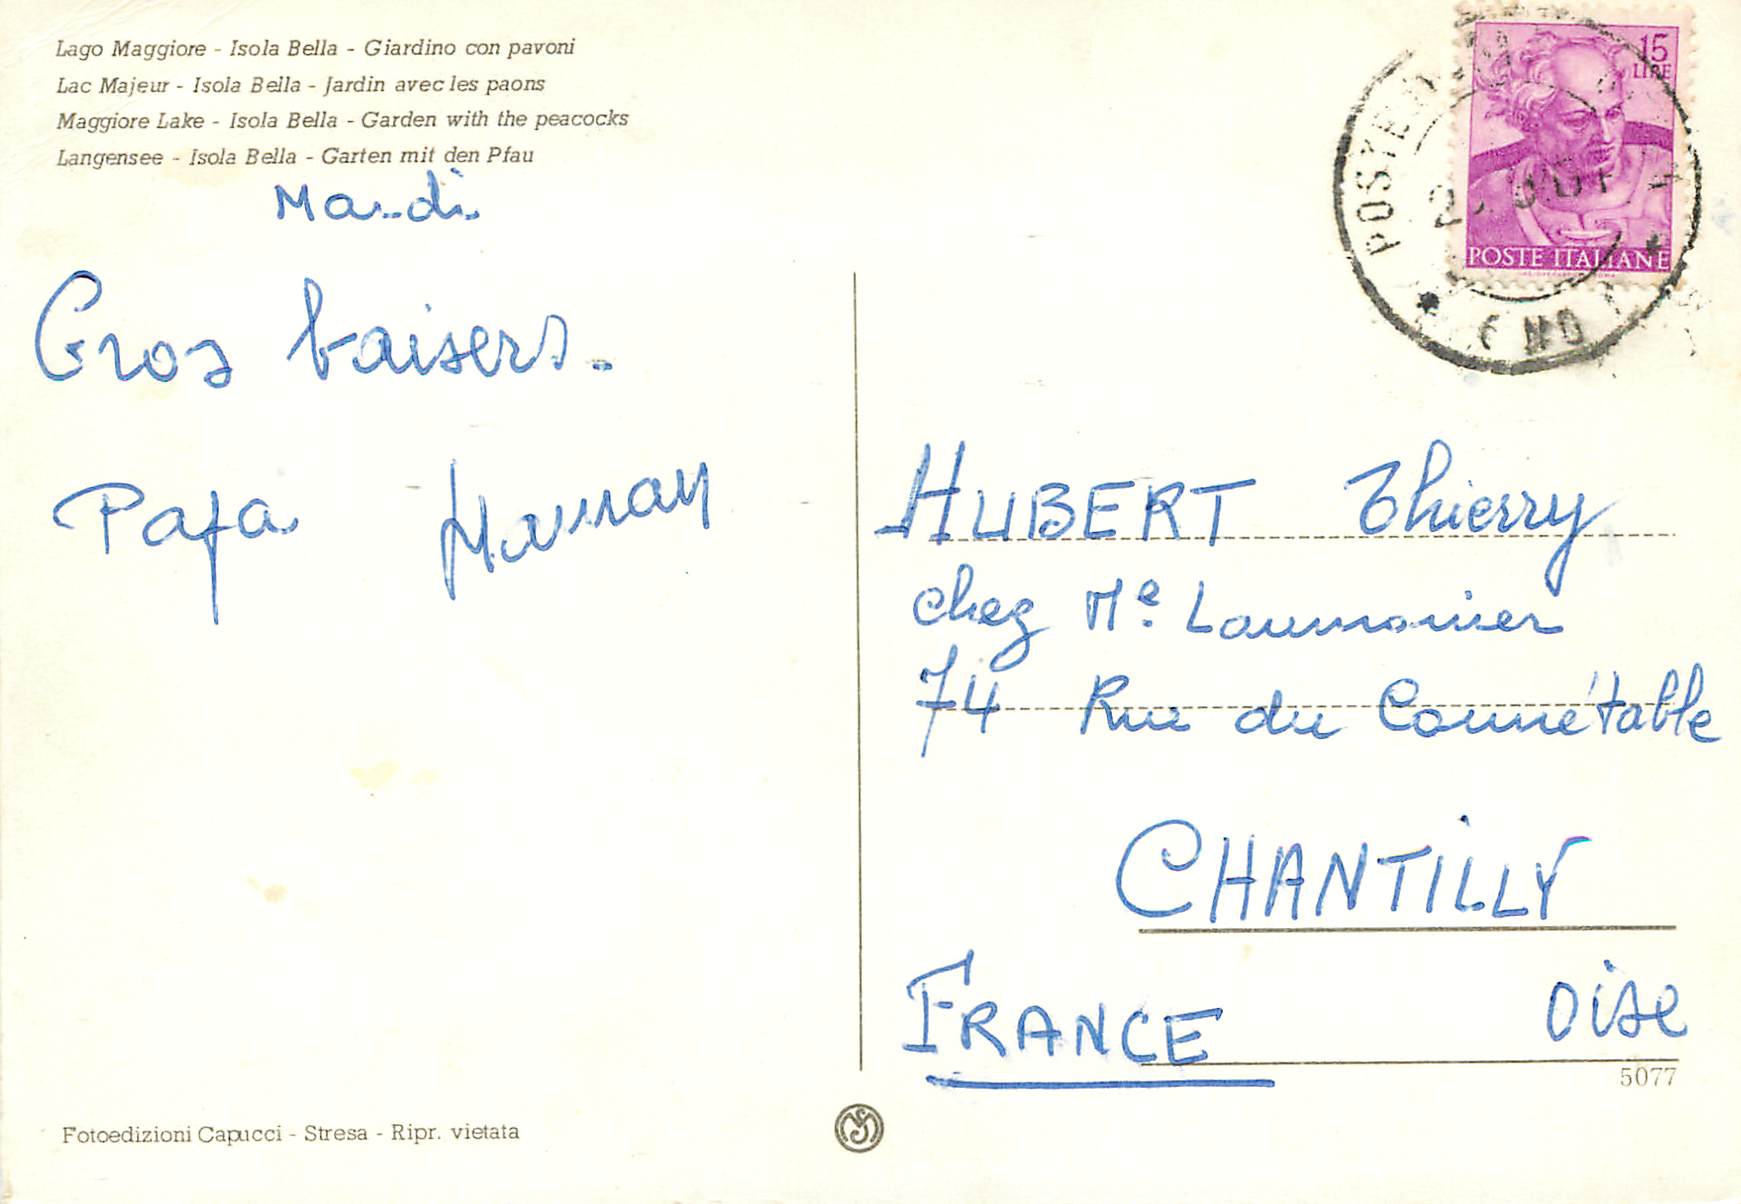 Lago Maggiore - Isola Bella - Giardino con pavoni
Lac Majeur - Isola Bella - Jardin avec les paons
Maggiore Lake - Isola Bella - Garden with the peacocks
Langensee - Isola Bella - Garten mit den Pfau
Mardi
Gros baisers.
Papa Maman
15
LIRE
POSTE ITALIANE
POSTE
HUBERT Thierry
chez Me. Laumonier
74 Rue du Connétable
CHANTILLY
FRANCE Oise
5077
Fotoedizioni Capucci - Stresa - Ripr. vietata